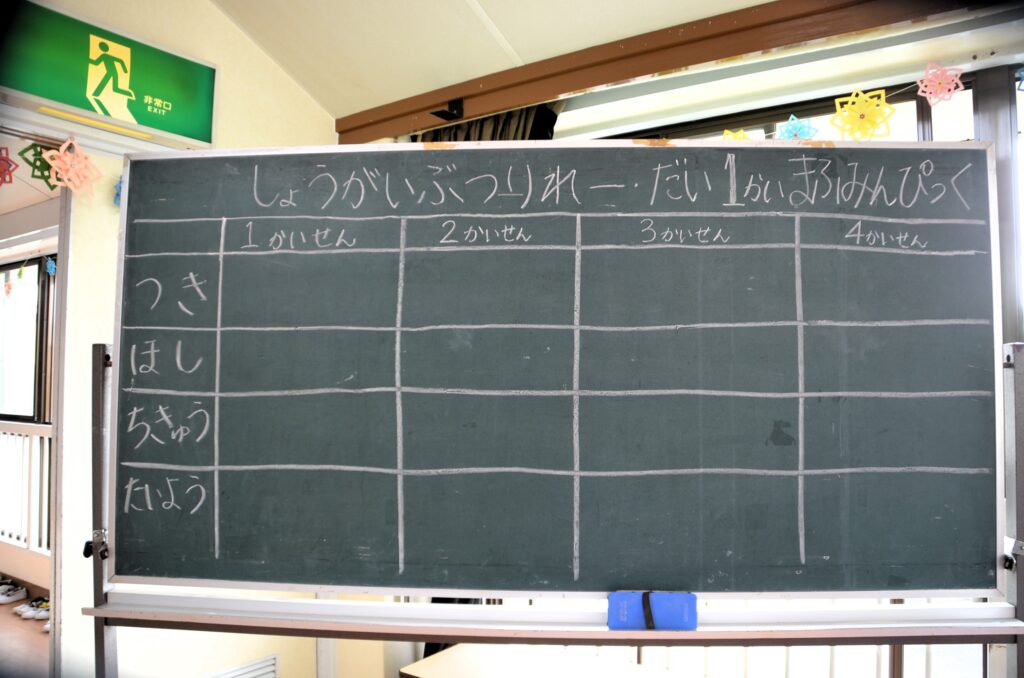 非常口
EXIT
しょうがいぶつりれー・だい1かいまふみんぴっく
1かいせん 2かいせん 3かいせん 4かいせん
つき
ほし
ちきゅう
たいよう